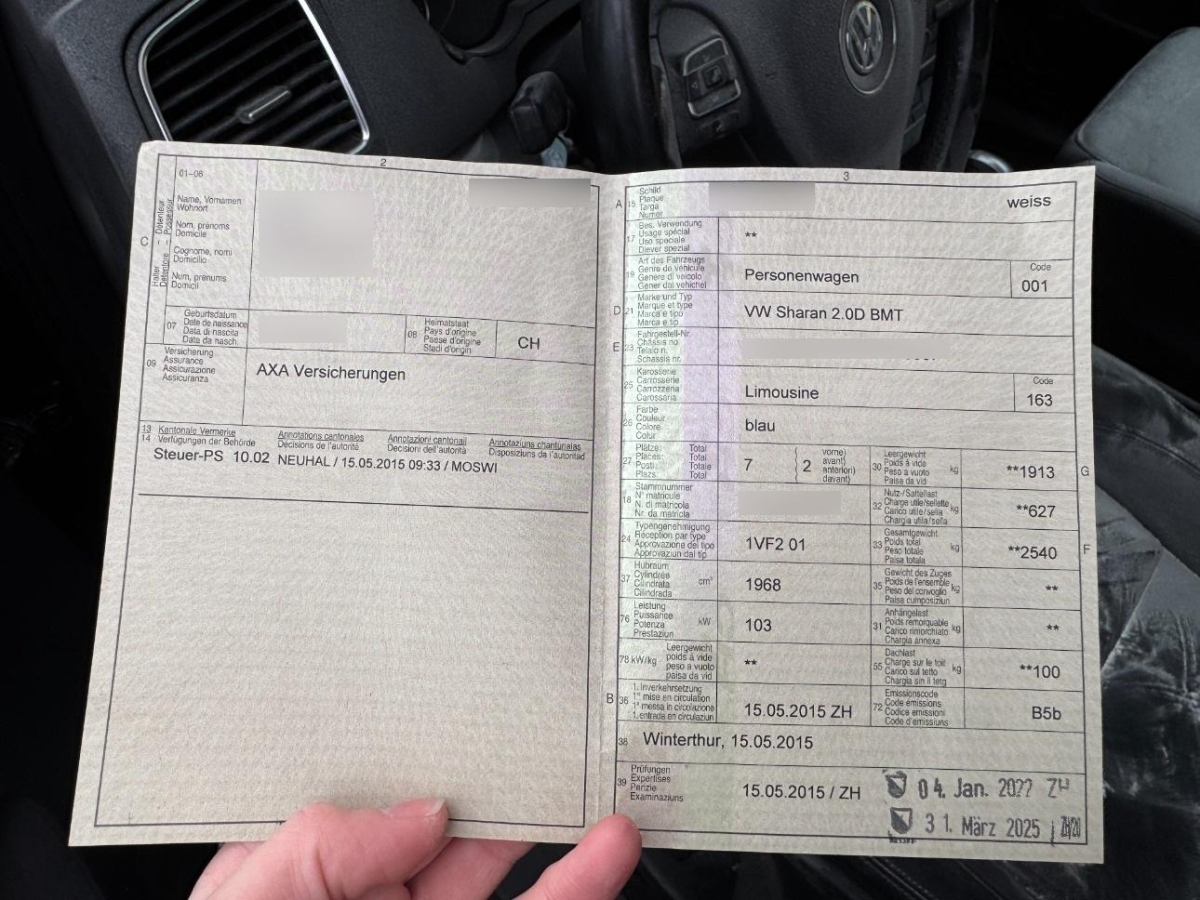 2
01–06
Name, Vornamen
Wohnort
Nom, prénoms
Domicile
Cognome, nomi
Domicilio
Num, prenums
Domicil
C
Halter – Détenteur
Detentore Possessur
07
Geburtsdatum
Date de naissance
Data di nascita
Data da nasch.
08
Heimatstaat
Pays d'origine
Paese d'origine
Stadi d'origin
CH
09
Versicherung
Assurance
Assicurazione
Assicuranza
AXA Versicherungen
13 Kantonale Vermerke Annotations cantonales Annotazioni cantonali Annotaziuns chantunalas
14 Verfügungen der Behörde Décisions de l'autorité Decisioni dell'autorità Disposiziuns da l'autoritad
Steuer-PS 10.02 NEUHAL / 15.05.2015 09:33 / MOSWI
3
A 15
Schild
Plaque
Targa
Numer
weiss
17
Bes. Verwendung
Usage spécial
Uso speciale
Diever spezial
**
19
Art des Fahrzeugs
Genre de véhicule
Genere di veicolo
Gener dal vehichel
Personenwagen
Code
001
D 21
Marke und Typ
Marque et type
Marca e tipo
Marca e tip
VW Sharan 2.0D BMT
E 23
Fahrgestell-Nr.
Châssis no
Telaio n.
Schassis nr.
25
Karosserie
Carrosserie
Carrozzeria
Carossaria
Limousine
Code
163
26
Farbe
Couleur
Colore
Colur
blau
27
Plätze: Total
Places: Total
Posti: Totale
Plazs: Total
7
2
vorne)
avant)
anteriori)
davant)
30
Leergewicht
Poids à vide
Peso a vuoto
Paisa da vid
kg
**1913
G
18
Stammnummer
N° matricule
N. di matricola
Nr. da matricla
32
Nutz-/Sattellast
Charge utile/sellette
Carico utile/sella
Chargia utila/sella
kg
**627
24
Typengenehmigung
Réception par type
Approvazione del tipo
Approvaziun dal tip
1VF2 01
33
Gesamtgewicht
Poids total
Peso totale
Paisa totala
kg
**2540
F
37
Hubraum
Cylindrée
Cilindrata
Cilindrada
cm³
1968
35
Gewicht des Zuges
Poids de l'ensemble
Peso del convoglio
Paisa cumposiziun
kg
**
76
Leistung
Puissance
Potenza
Prestaziun
kW
103
31
Anhängelast
Poids remorquable
Carico rimorchiato
Chargia annexa
kg
**
78 kW/kg
Leergewicht
poids à vide
peso a vuoto
paisa da vid
**
55
Dachlast
Charge sur le toit
Carico sul tetto
Chargia sin il tetg
kg
**100
B 36
1. Inverkehrsetzung
1re mise en circulation
1a messa in circolazione
1. entrada en circulaziun
15.05.2015 ZH
72
Emissionscode
Code émissions
Codice emissioni
Code d'emissiuns
B5b
38
Winterthur, 15.05.2015
39
Prüfungen
Expertises
Perizie
Examinaziuns
15.05.2015 / ZH
04. Jan. 2022
31. März 2025